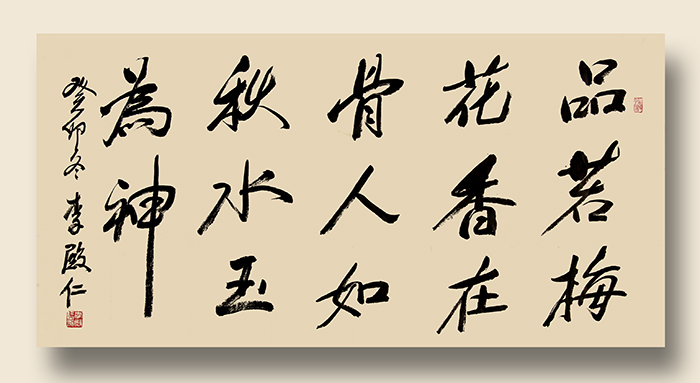 品若梅
花香在
骨人如
秋水玉
為神
癸卯冬 李殿仁